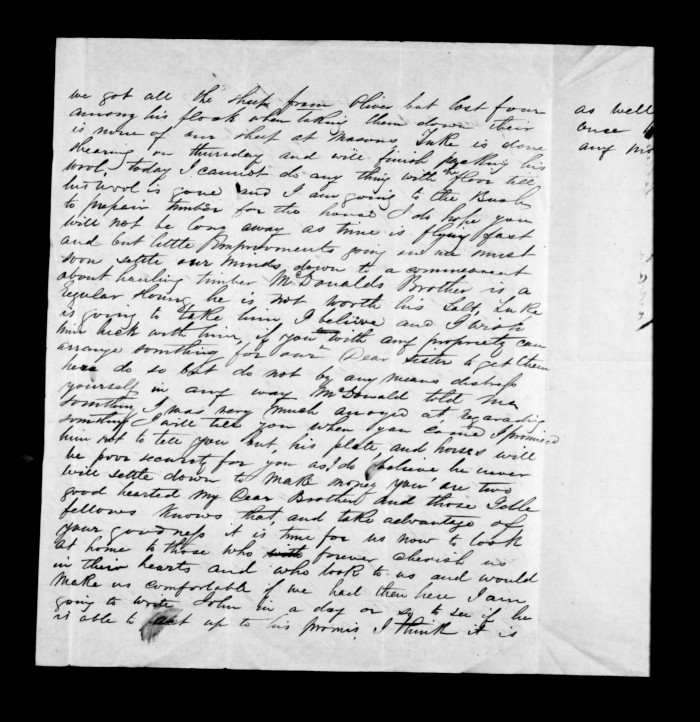 we got all the sheep from Oliver but lost four
among his flock when taking them down their
is none of our sheep at Masons Luke is done
shearing on thursday and will finish packing his
wool, today I cannot do any thing with the Floor till
his wool is gone and I am going to the Bush
to prepair timber for the house I do hope you
will not be long away as time is flying fast
and but little Improvements going on we must
soon settle our minds down to a
about hauling timber McDonalds Brother is a
regular he is not worth his Salt, Luke
is going to take him I believe and I wish
him luck with him, if you with any propriety can
arrange somthing for our Dear Sister to get them
here do so but do not by any means distress
yourself in any way McDonald told me
somthing I was very much anoyed at regarading
somthing I will tell you when you come I promised
him not to tell you but, his plate and horses will
be poor security for you as I do believe he never
will settle down to make money you are two
good hearted my Dear Brother and those
fellows knows that, and take advantage of
your goodness it is time for us now to look
at home to those who with forever cherish us
in their hearts and who look to us and would
make us comfortable if we had then here I am
going to write John in a day or so to see if he
is able to act up to his promis. I think it is
as well
once
any